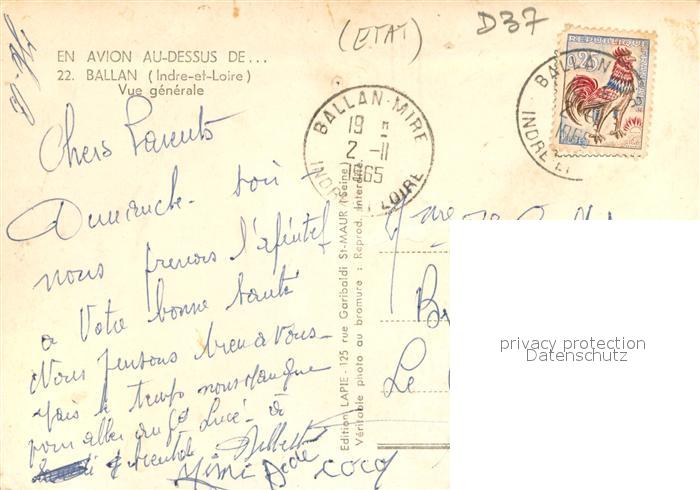 (ETAT)
D37
EN AVION AU-DESSUS DE...
22. BALLAN (Indre-et-Loire)
Vue générale
0,25
BALLAN-MIRE
19 H
2 -11
1965
INDRE-ET-LOIRE
BALLAN
1965
INDRE-ET
Chers Parents
Dimanche soir
nous prenons l'apéritif
a Votre bonne santé
Nous pensons bien a vous
Mais le temps nous manque
pour aller au Gd Lucé - à
Mimi Dédé COCO
Edition LAPIE - 125 rue Garibaldi St-MAUR (Seine)
Véritable photo au bromure : Reprod. Interdite
Le
privacy protection
Datenschutz